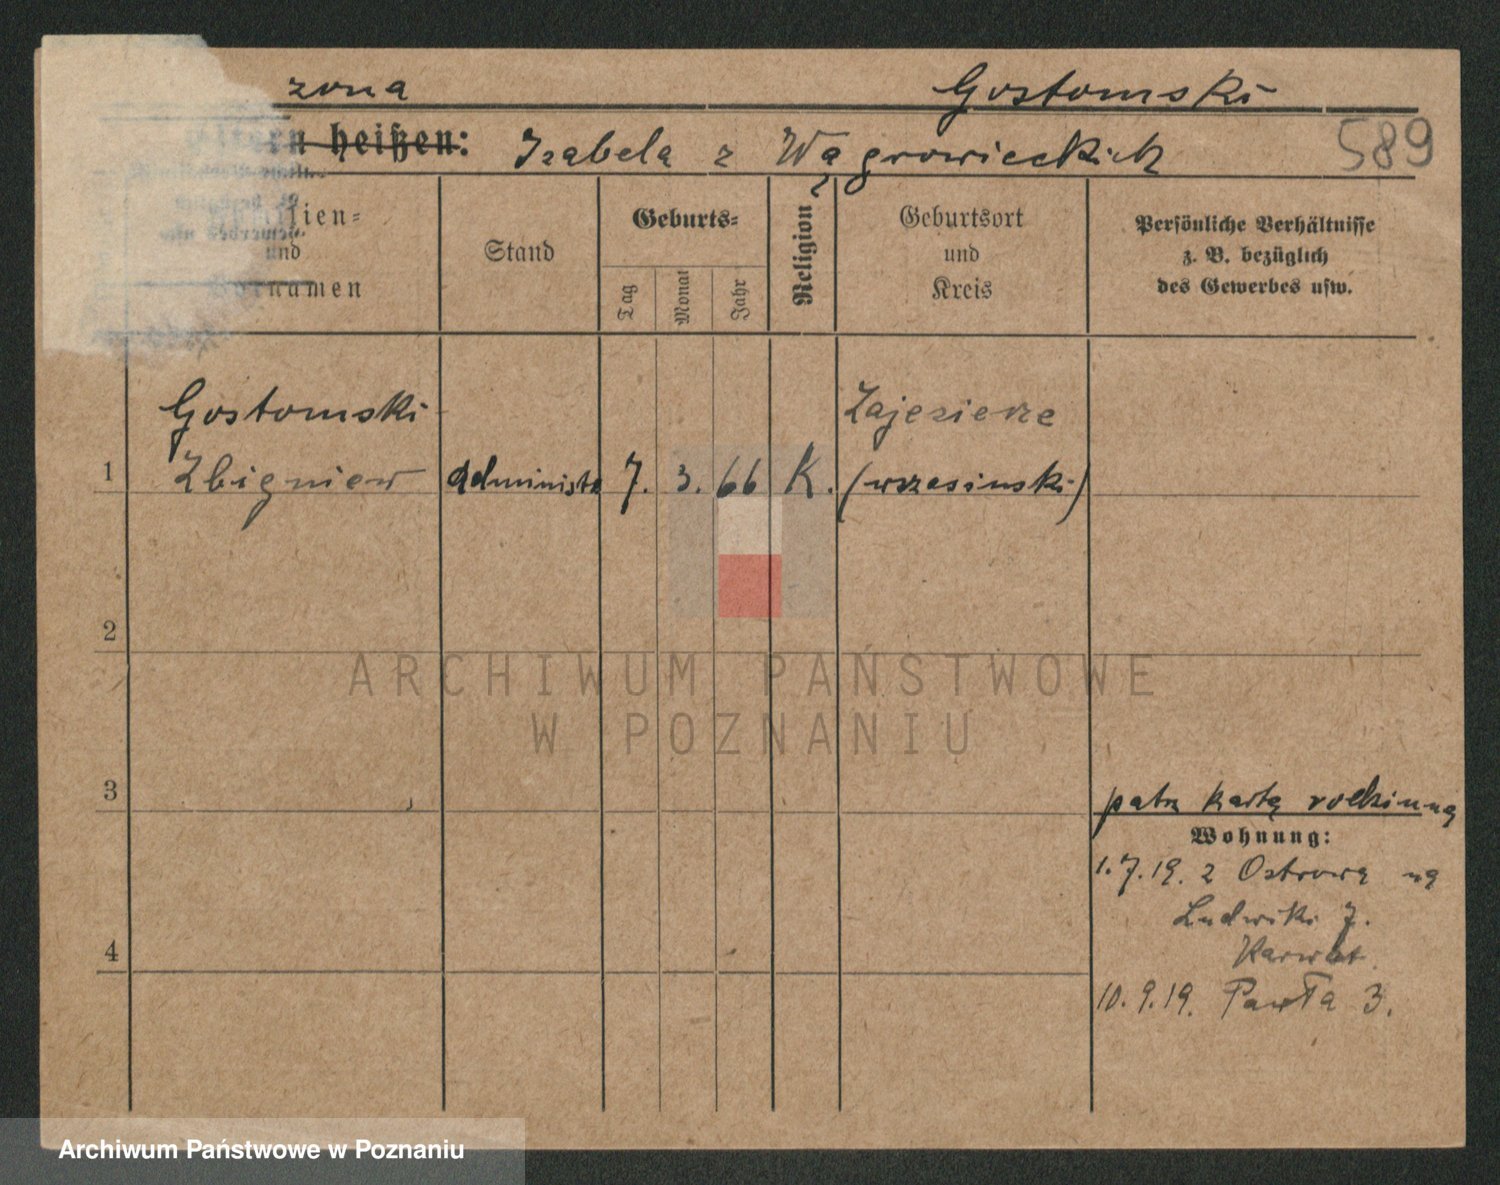 żona Gostomski
n heißen: Izabela z Wągrowieckich 589
lien=
und
Vornamen
Stand
Geburts=
Tag
Monat
Jahr
Religion
Geburtsort
und
Kreis
Persönliche Verhältnisse
z. B. bezüglich
des Gewerbes usw.
Gostomski Zajezierze
1 Zbigniew administr 7. 3. 66 K. (wrzesiński)
2
ARCHIWUM PAŃSTWOWE
W POZNANIU
3 patrz kartę rodzinną
Wohnung:
1.7.19. z Ostrowa na
Ludwiki 7.
Karwat.
4
10.9.19. Pawła 3.
Archiwum Państwowe w Poznaniu